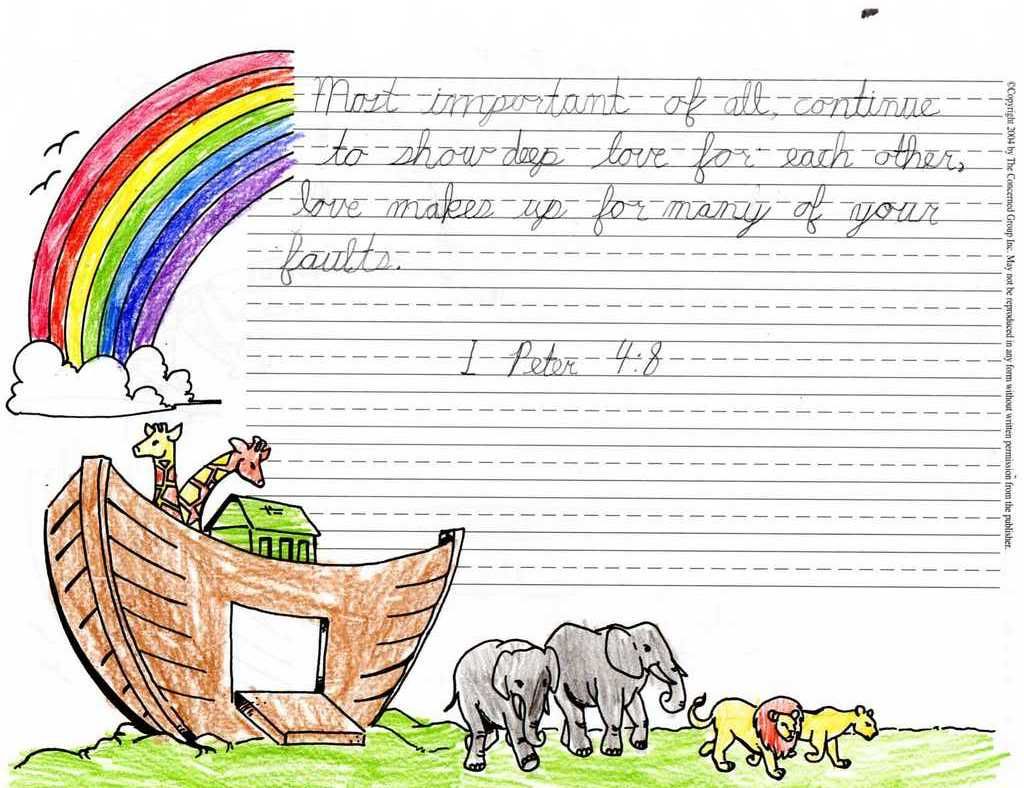 Most important of all, continue
to show deep love for each other,
love makes up for many of your
faults.
I Peter 4:8
©Copyright 2004 by The Concerned Group Inc. May not be reproduced in any form without written permission from the publisher.